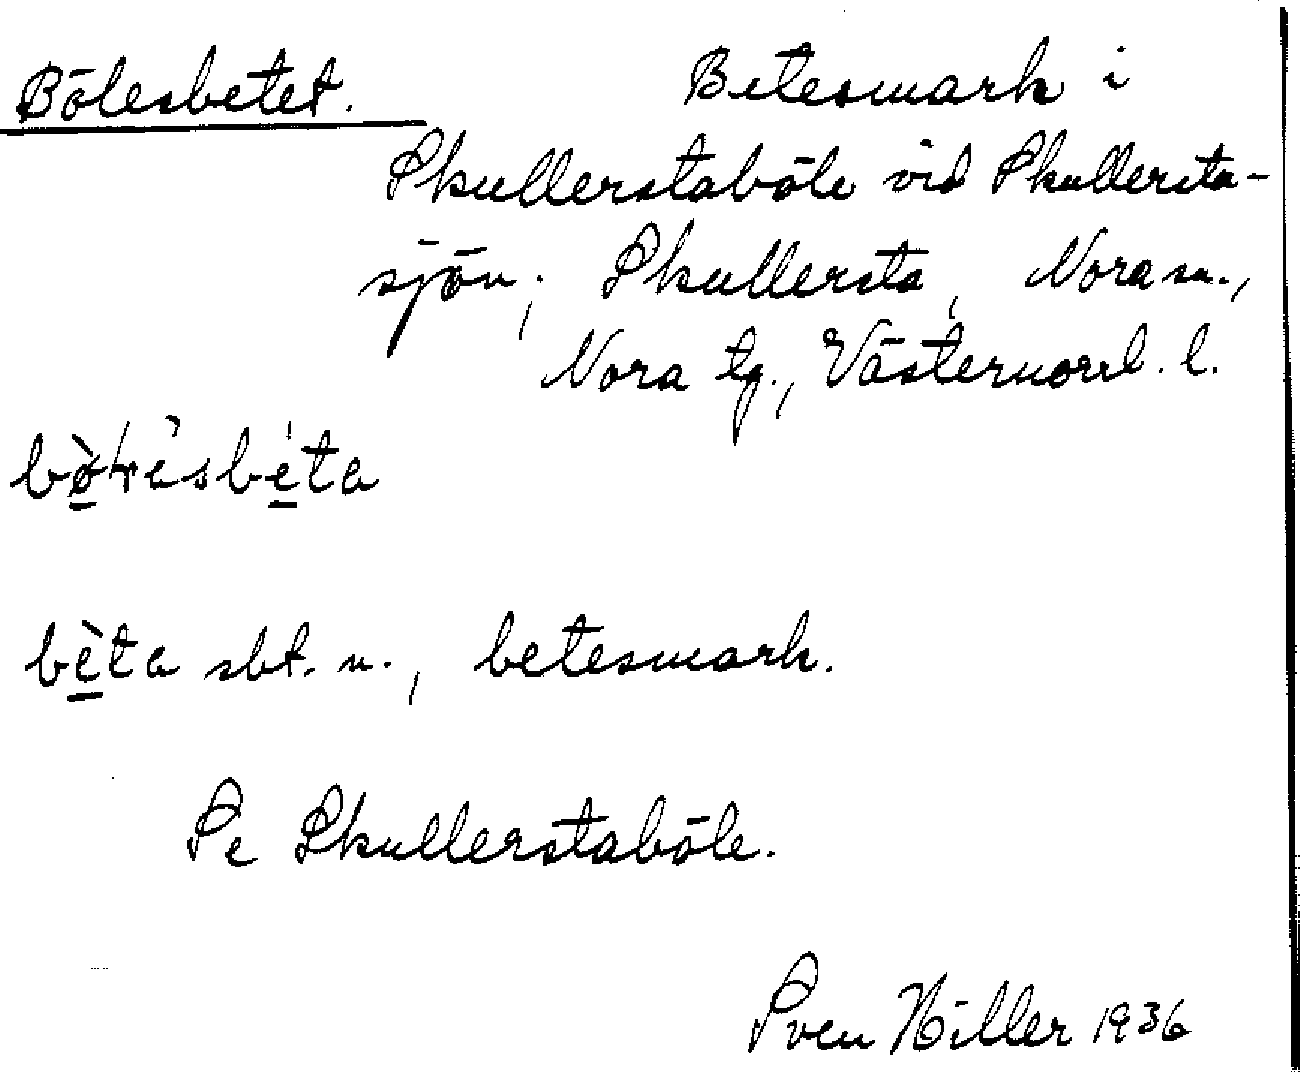 Bölesbetet. Betesmark i
Skullerstaböle vid Skullersta-
sjön; Skullersta, Nora sn.,
Nora tg., Västernorrl. l.
bèta sbt. n., betesmark.
Se Skullerstaböle.
Sven Hiller 1936